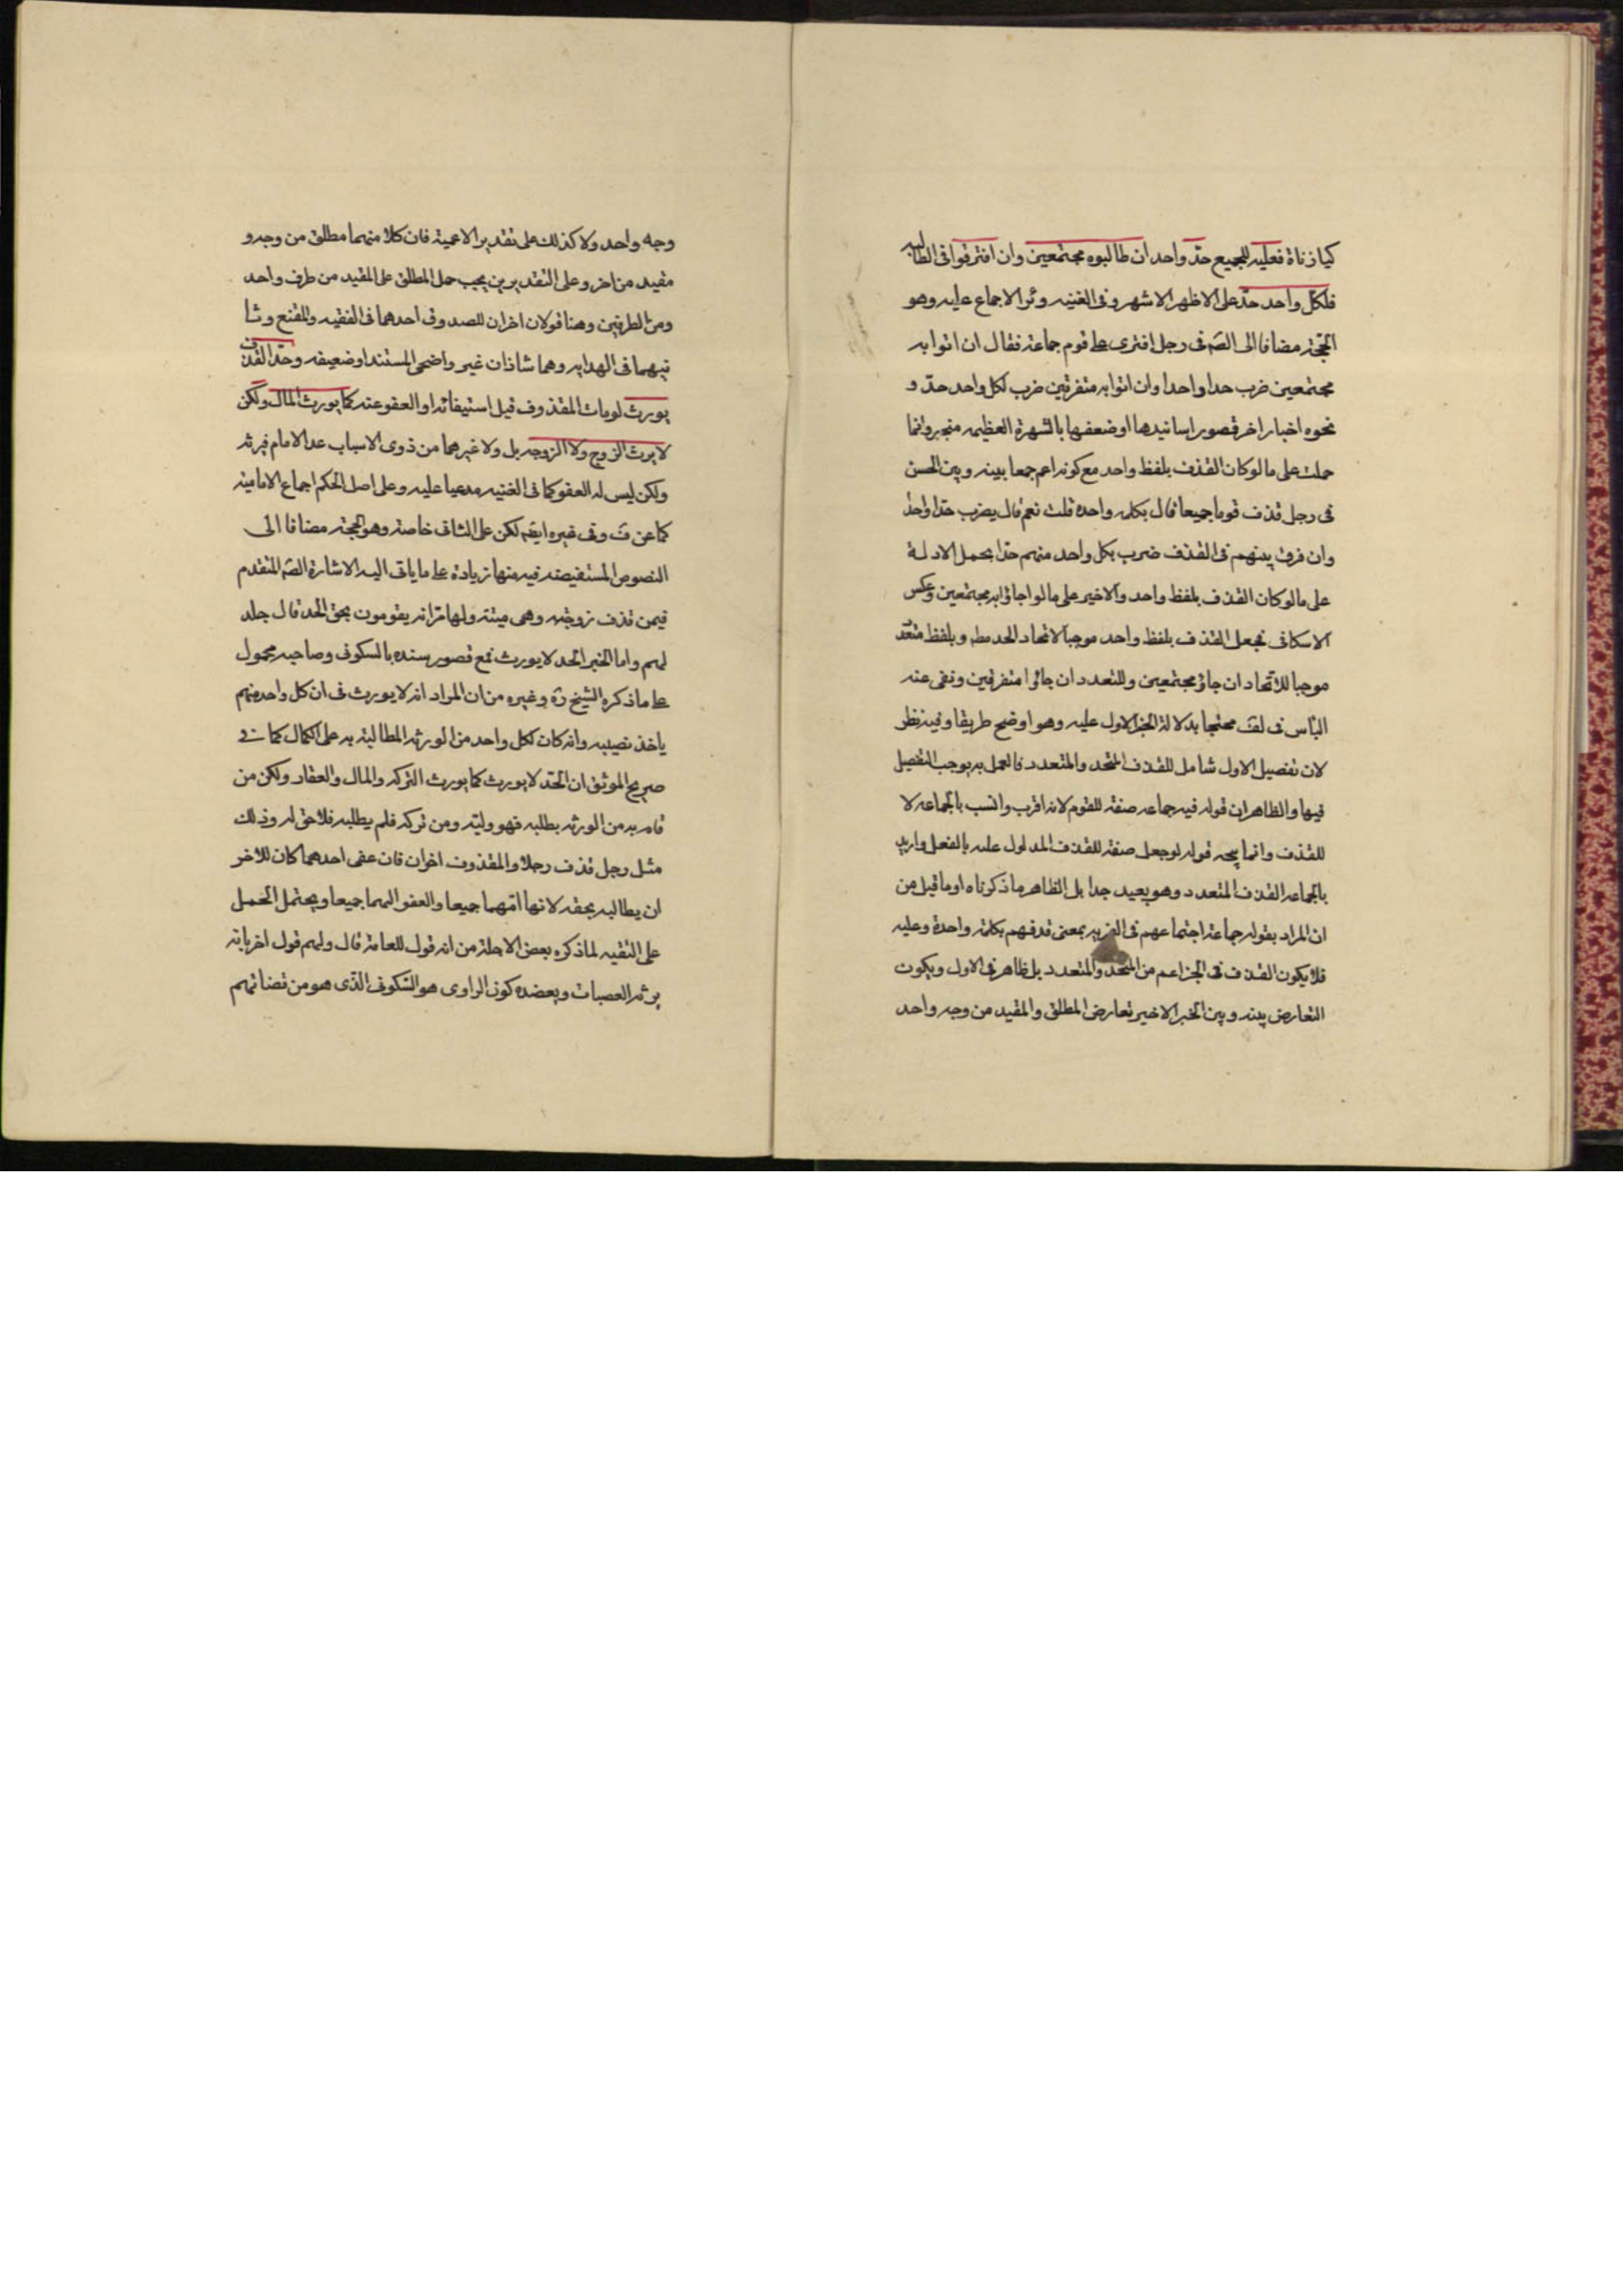 كيا زناة فعليه للجميع حدّ واحد ان طالبوه مجتمعين وان افترقوا فى المطالبه
فلكل واحد حدّ على الاظهر الاشهر وفى الغنيه وئر الاجماع عليه وهو
الحجّة مضافا الى الصّ فى رجل افترى على قوم جماعة فقال ان اتوا به
مجتمعين ضرب حدا واحدا وان اتوا به متفرقين ضرب لكل واحد حدّ و
نحوه اخبار اخر قصور اسانيدها او ضعفها بالشهرة العظيمه منجبر وانما
حملت على ما لو كان القذف بلفظ واحد مع كونه اعم جمعا بينه وبين الحسن
فى رجل قذف قوما جميعا قال بكلمه واحدة قلت نعم قال يضرب حدّا واحدا
وان فرق بينهم فى القذف ضرب بكل واحد منهم حدّا بحمل الادلة
على ما لو كان القذف بلفظ واحد والاخير على ما لو اجاؤا به مجتمعين وعكس
الاسكافى فجعل القذف بلفظ واحد موجبا لاتحاد الحد مط وبلفظ متعّد
موجبا للاتّحاد ان جاؤ مجتمعين وللتعدد ان جائوا متفرقين ونفى عنه
البأس فى لف محتجا بدلالة الخبر الاول عليه وهو اوضح طريقا وفيه نظر
لان تفصيل الاول شامل للقذف المتحد والمتعدد فالعمل به يوجب التفصيل
فيها والظاهر ان قوله فيه جماعه صفة للقوم لانه اقرب وانسب بالجماعه لا
للقذف وانما يتجه قوله لو جعل صفة للقذف المدلول عليه بالفعل واريد
بالجماعه القذف المتعدد وهو بعيد جدا بل الظاهر ما ذكرناه او ما قيل من
ان المراد بقوله جماعة اجتماعهم فى الفريه بمعنى قذفهم بكلمة واحدة وعليه
فلا يكون القذف فى الخبر اعم من المتحد والمتعدد بل ظاهر فى الاول ويكون
التعارض بينه وبين الخبر الاخير تعارض المطلق والمقيد من وجه واحد
وجه واحد ولا كذلك على تقدير الاعمية فان كلا منهما مطلق من وجه و
مقيد من اخر وعلى التقديرين يجب حمل المطلق على المقيد من طرف واحد
ومن الطرفين وهنا قولان اخران للصدوق احدهما فى الفقيه والمقنع وثا
نيهما فى الهدايه وهما شاذان غير واضحى المستند او ضعيفه وحدّ القذف
يورث لو مات المقذوف قبل استيفائه او العفو عنه كما يورث المال ولكن
لا يرث الزوج ولا الزوجه بل ولا غيرهما من ذوى الاسباب عدا الامام فيرثه
ولكن ليس له العفو كما فى الغنيه مدعيا عليه وعلى اصل الحكم اجماع الاماميّة
كما عن ف وفى غيره ايضً لكن على الثانى خاصة وهو الحجة مضافا الى
النصوص المستفيضة فيه منها زيادة على ما ياتى اليه الاشارة الصّ المتقدم
فيمن قذف زوجته وهى ميتة ولها قرابه يقومون بحق الحد قال جلد
لهم واما الخبر الحد لا يورث فمع قصور سنده بالسكونى وصاحبه محمول
على ما ذكره الشيخ رَه وغيره من ان المراد انه لا يورث فى ان كل واحد منهم
ياخذ نصيبه وانه كان لكل واحد من الورثه المطالبة به على الكمال كما فى
صريح الموثق ان الحدّ لا يورث كما يورث التركه والمال والعقار ولكن من
قام به من الورثه يطلبه فهو وليّه ومن تركه فلم يطلبه فلا حق له وذلك
مثل رجل قذف رجلا والمقذوف اخوان فان عفى احدهما كان للاخر
ان يطالبه بحقه لانها امّهما جميعا والعفو اليهما جميعا ويحتمل الحمل
على التقيه لما ذكره بعض الاجلة من انه قول للعامة قال ولهم قول اخر بانه
يرثه العصبات ويعضده كون الراوى هو السّكونى الذى هو من قضاتهم